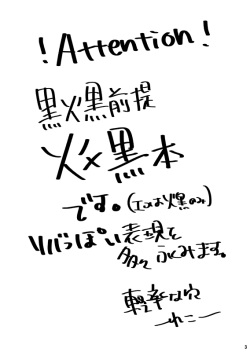 ！Attention！
黒火黒前提
火×黒本
です。(エロは爆のみ)
リバっぽい表現を
多々ふくみます。
軽率な穴
ーれこー